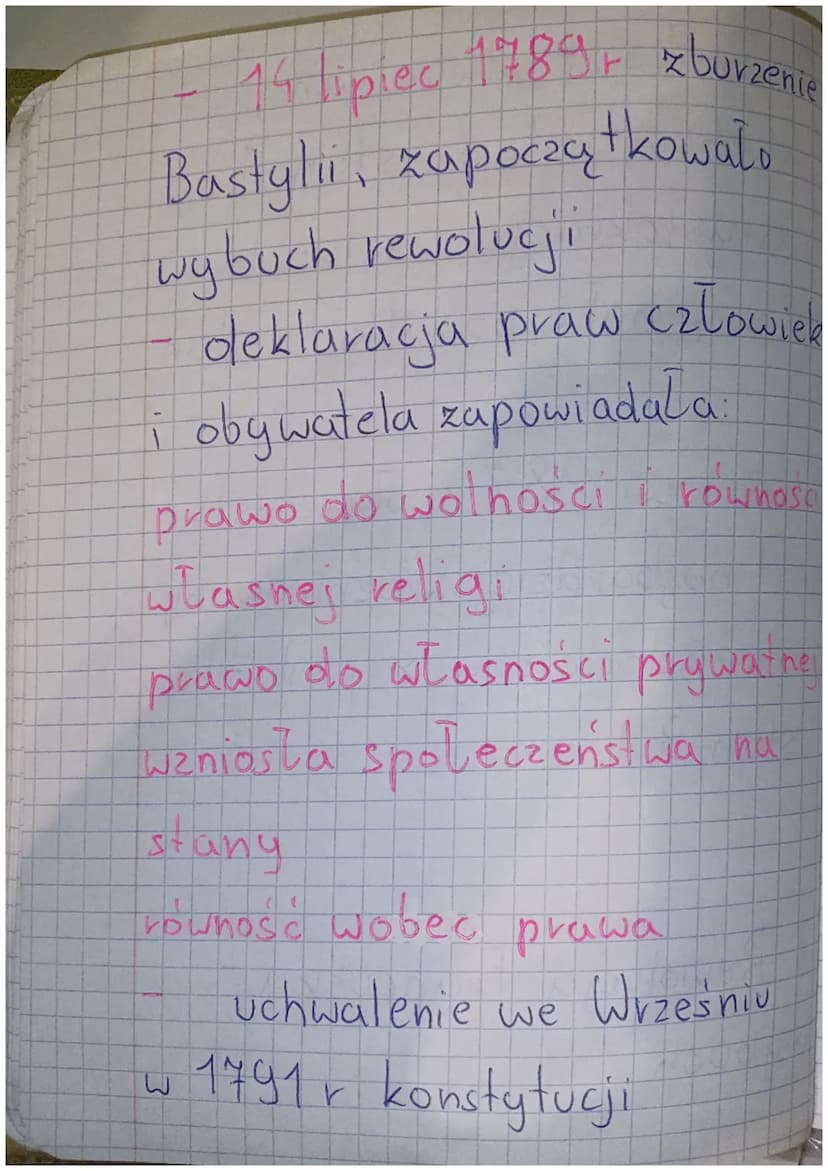 - 14 lipiec 1789r zburzenie
Bastylii, zapoczątkowało
wybuch rewolucji
- deklaracja praw człowiek
i obywatela zapowiadała:
prawo do wolności i równośc
własnej religi
prawo do własności prywatnej
wzniosła społeczeństwa na
stany
równość wobec prawa
- uchwalenie we Wrześniu
w 1791 r konstytucji